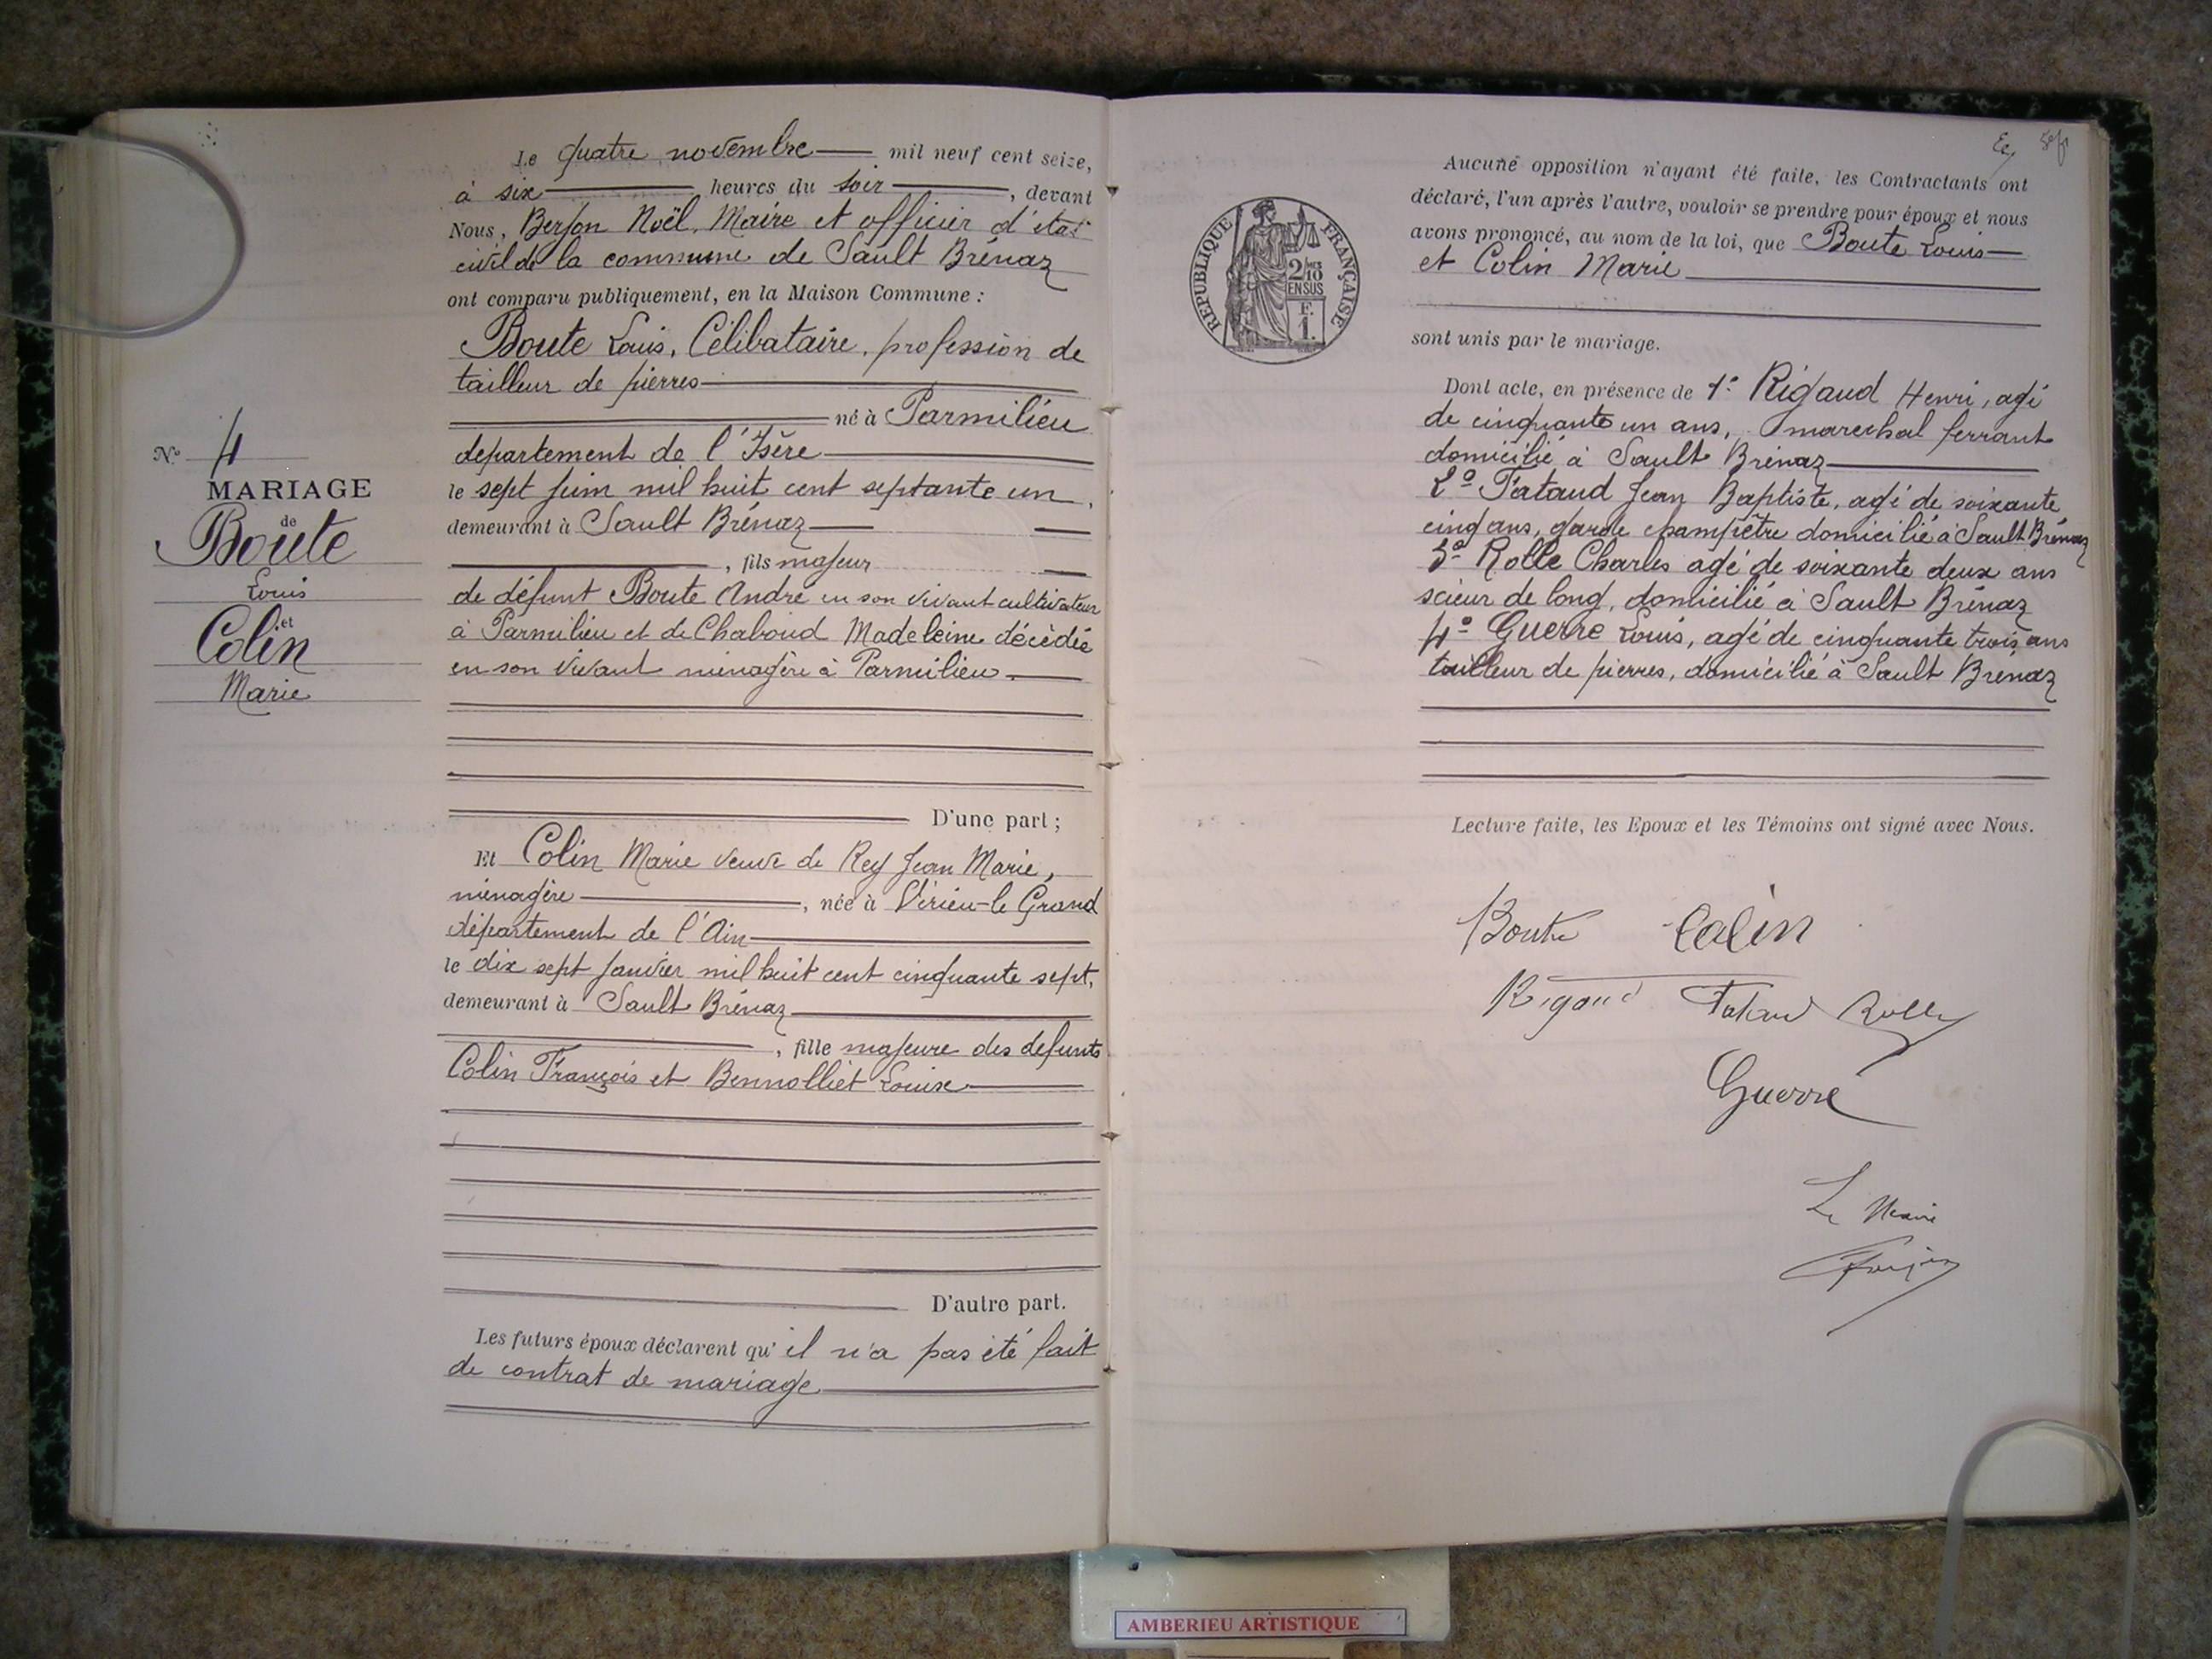 Le quatre novembre mil neuf cent seize,
à six heures du soir, devant
Nous, Berson Noël, Maire et officier d'état
civil de la commune de Sault Brénaz
ont comparu publiquement, en la Maison Commune :
Boute Louis, Célibataire, profession de
tailleur de pierres
né à Parmilieu
département de l'Isère
le sept juin mil huit cent septante un,
demeurant à Sault Brénaz
, fils majeur
de défunt Boute André en son vivant cultivateur
à Parmilieu et de Chaboud Madeleine décèdée
en son vivant ménagère à Parmilieu.
D'une part ;
Nº 4
MARIAGE
de
Boute
Louis
et
Colin
Marie
Et Colin Marie veuve de Rey Jean Marie,
ménagère, née à Virieu-le Grand
département de l'Ain
le dix sept janvier mil huit cent cinquante sept,
demeurant à Sault Brénaz
, fille majeure des defunts
Colin François et Bennolliet Louise
D'autre part.
Les futurs époux déclarent qu'il n'a pas été fait
de contrat de mariage
Aucune opposition n'ayant été faite, les Contractants ont
déclaré, l'un après l'autre, vouloir se prendre pour époux et nous
avons prononcé, au nom de la loi, que Boute Louis
et Colin Marie
sont unis par le mariage.
REPUBLIQUE FRANÇAISE
2/10
EN SUS
F.
1.
Dont acte, en présence de 1º Rigaud Henri, agé
de cinquante un ans, marechal ferrant
domicilié à Sault Brénaz
2º Tataud Jean Baptiste, agé de soixante
cinq ans, garde champêtre domicilié à Sault Brénaz
3º Rolle Charles agé de soixante deux ans
scieur de long, domicilié à Sault Brénaz
4º Guerre Louis, agé de cinquante trois ans
tailleur de pierres, domicilié à Sault Brenaz
Lecture faite, les Epoux et les Témoins ont signé avec Nous.
Boute Colin
Rigaud Tataud Rolle
Guerre
Le Maire
AMBERIEU ARTISTIQUE